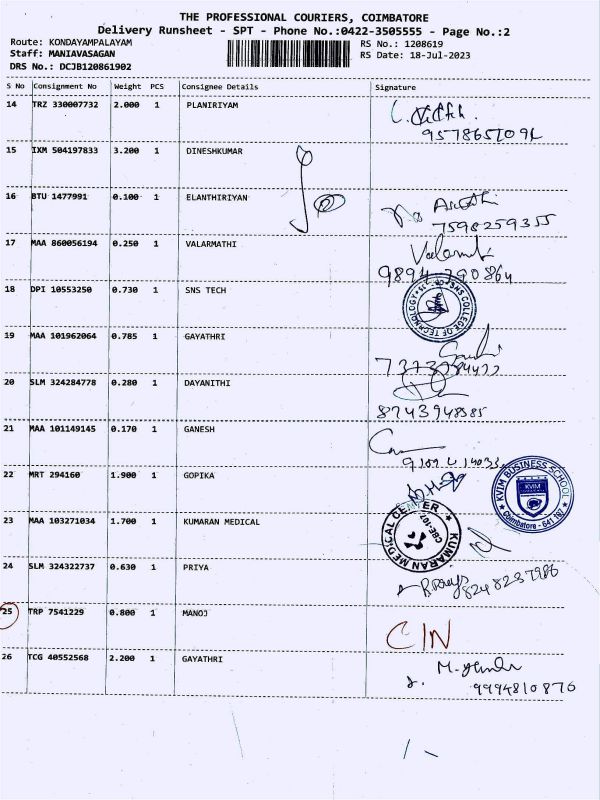 THE PROFESSIONAL COURIERS, COIMBATORE
Delivery Runsheet - SPT - Phone No.:0422-3505555 - Page No.:2
Route: KONDAYAMPALAYAM RS No.: 1208619
Staff: MANIAVASAGAN RS Date: 18-Jul-2023
DRS No.: DCJB120861902
S No Consignment No Weight PCS Consignee Details Signature
14 TRZ 330007732 2.000 1 PLANIRIYAM
15 IXM 504197833 3.200 1 DINESHKUMAR
16 BTU 1477991 0.100 1 ELANTHIRIYAN
7598259355
17 MAA 860056194 0.250 1 VALARMATHI
18 DPI 10553250 0.730 1 SNS TECH
SNS COLLEGE OF TECHNOLOGY
19 MAA 101962064 0.785 1 GAYATHRI
20 SLM 324284778 0.280 1 DAYANITHI
21 MAA 101149145 0.170 1 GANESH
22 MRT 294160 1.900 1 GOPIKA
KVIM BUSINESS SCHOOL
KVIM
Coimbatore - 641 107
23 MAA 103271034 1.700 1 KUMARAN MEDICAL
KUMARAN MEDICAL CENTER
CBE-107
24 SLM 324322737 0.630 1 PRIYA
25 TRP 7541229 0.800 1 MANOJ
C/N
26 TCG 40552568 2.200 1 GAYATHRI
9994810876